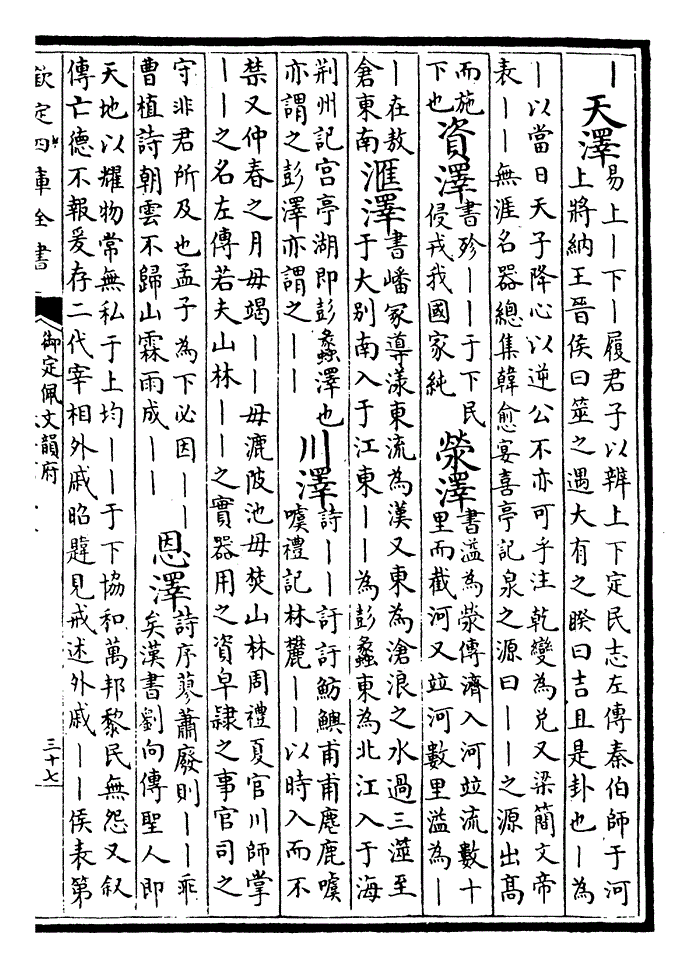 ｜天澤易上｜下｜履君子以辨上下定民志左傳秦伯師于河
上將納王晉侯曰筮之遇大有之睽曰吉且是卦也｜為
｜以當日天子降心以逆公不亦可乎注乾變為兌又梁簡文帝
表｜｜無涯名器總集韓愈宴喜亭記泉之源曰｜｜之源出髙
而施
下也
資澤書殄｜｜于下民
侵戎我國家純
滎澤書溢為滎傳濟入河竝流數十
里而截河又竝河數里溢為｜
｜在敖
倉東南
滙澤書嶓冢導漾東流為漢又東為滄浪之水過三澨至
于大别南入于江東｜｜為彭蠡東為北江入于海
荆州記宮亭湖即彭蠡澤也
亦謂之彭澤亦謂之｜｜
川澤詩｜｜訏訏魴鱮甫甫麀鹿噳
噳禮記林麓｜｜以時入而不
禁又仲春之月毋竭｜｜毋漉陂池毋焚山林周禮夏官川師掌
｜｜之名左傳若夫山林｜｜之實器用之資皁隷之事官司之
守非君所及也孟子為下必因｜｜
曹植詩朝雲不歸山霖雨成｜｜
恩澤詩序蓼蕭廢則｜｜乖
矣漢書劉向傳聖人即
天地以耀物常無私于上均｜｜于下協和萬邦黎民無怨又叙
傳亡德不報爰存二代宰相外戚昭韙見戒述外戚｜｜侯表第
欽定四庫全書
御定佩文韻府
三十七